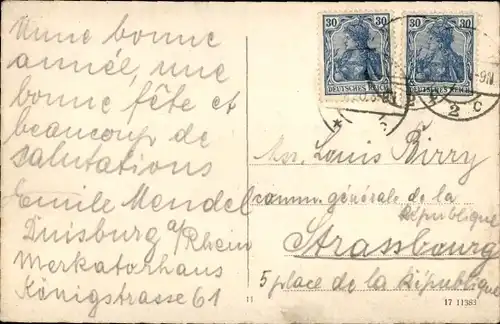 Une bonne
année, une
bonne fête et
beaucoup de
salutations
Emile Mendel
Duisburg a/Rhein
Merkatorhaus
Königstrasse 61
30 30
DEUTSCHES REICH
30 30
DEUTSCHES REICH
2 c
Mr. Louis Birry
comm. générale de la
République
Strassbourg
5 place de la République
11
17 11383